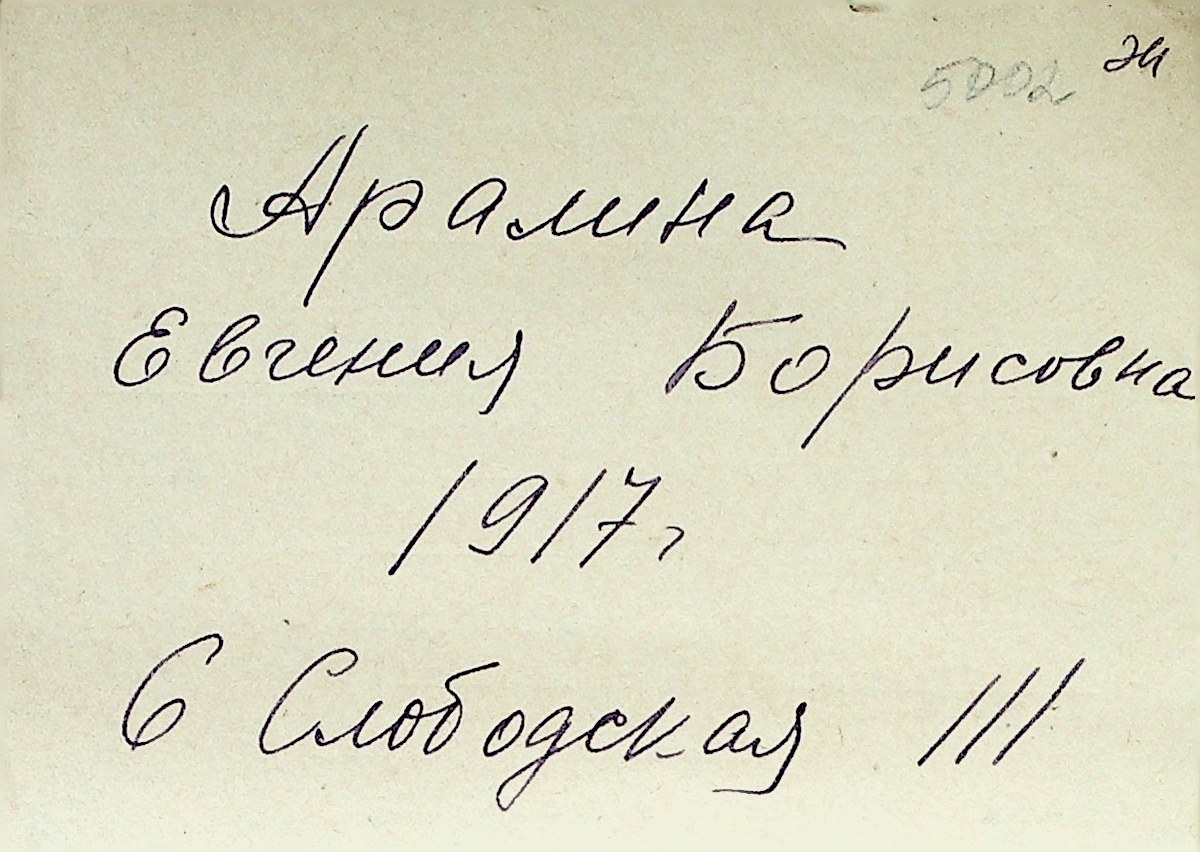 5002 эк
Аралина
Евгения Борисовна
1917г
6 Слободская 111